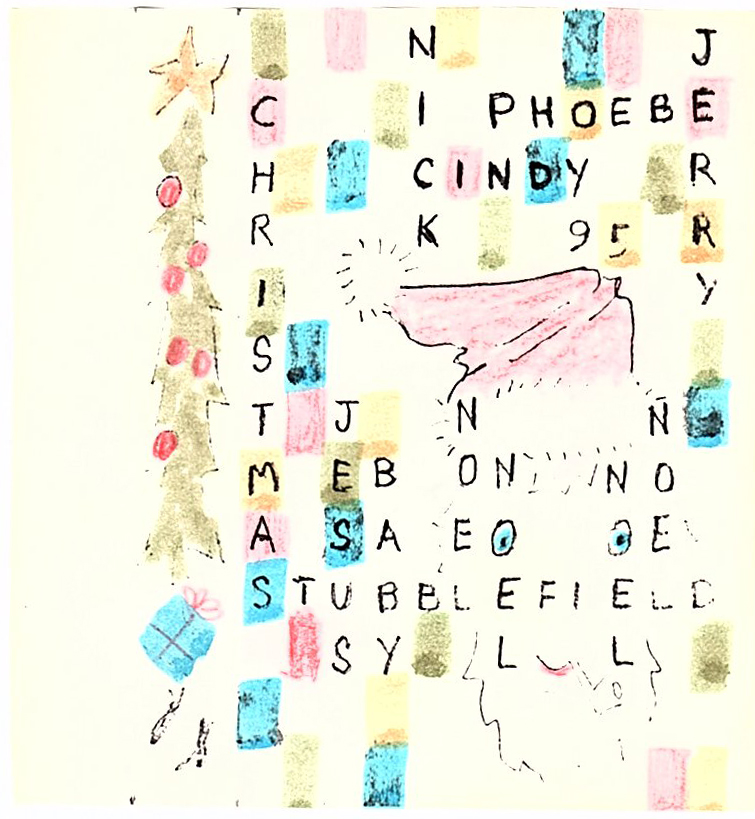 N J
C I PHOEBE
H CINDY R
R K 95 R
I Y
S
T J N N
M E B O N N O
A S A E O O E
STUBBLEFIELD
S Y L L